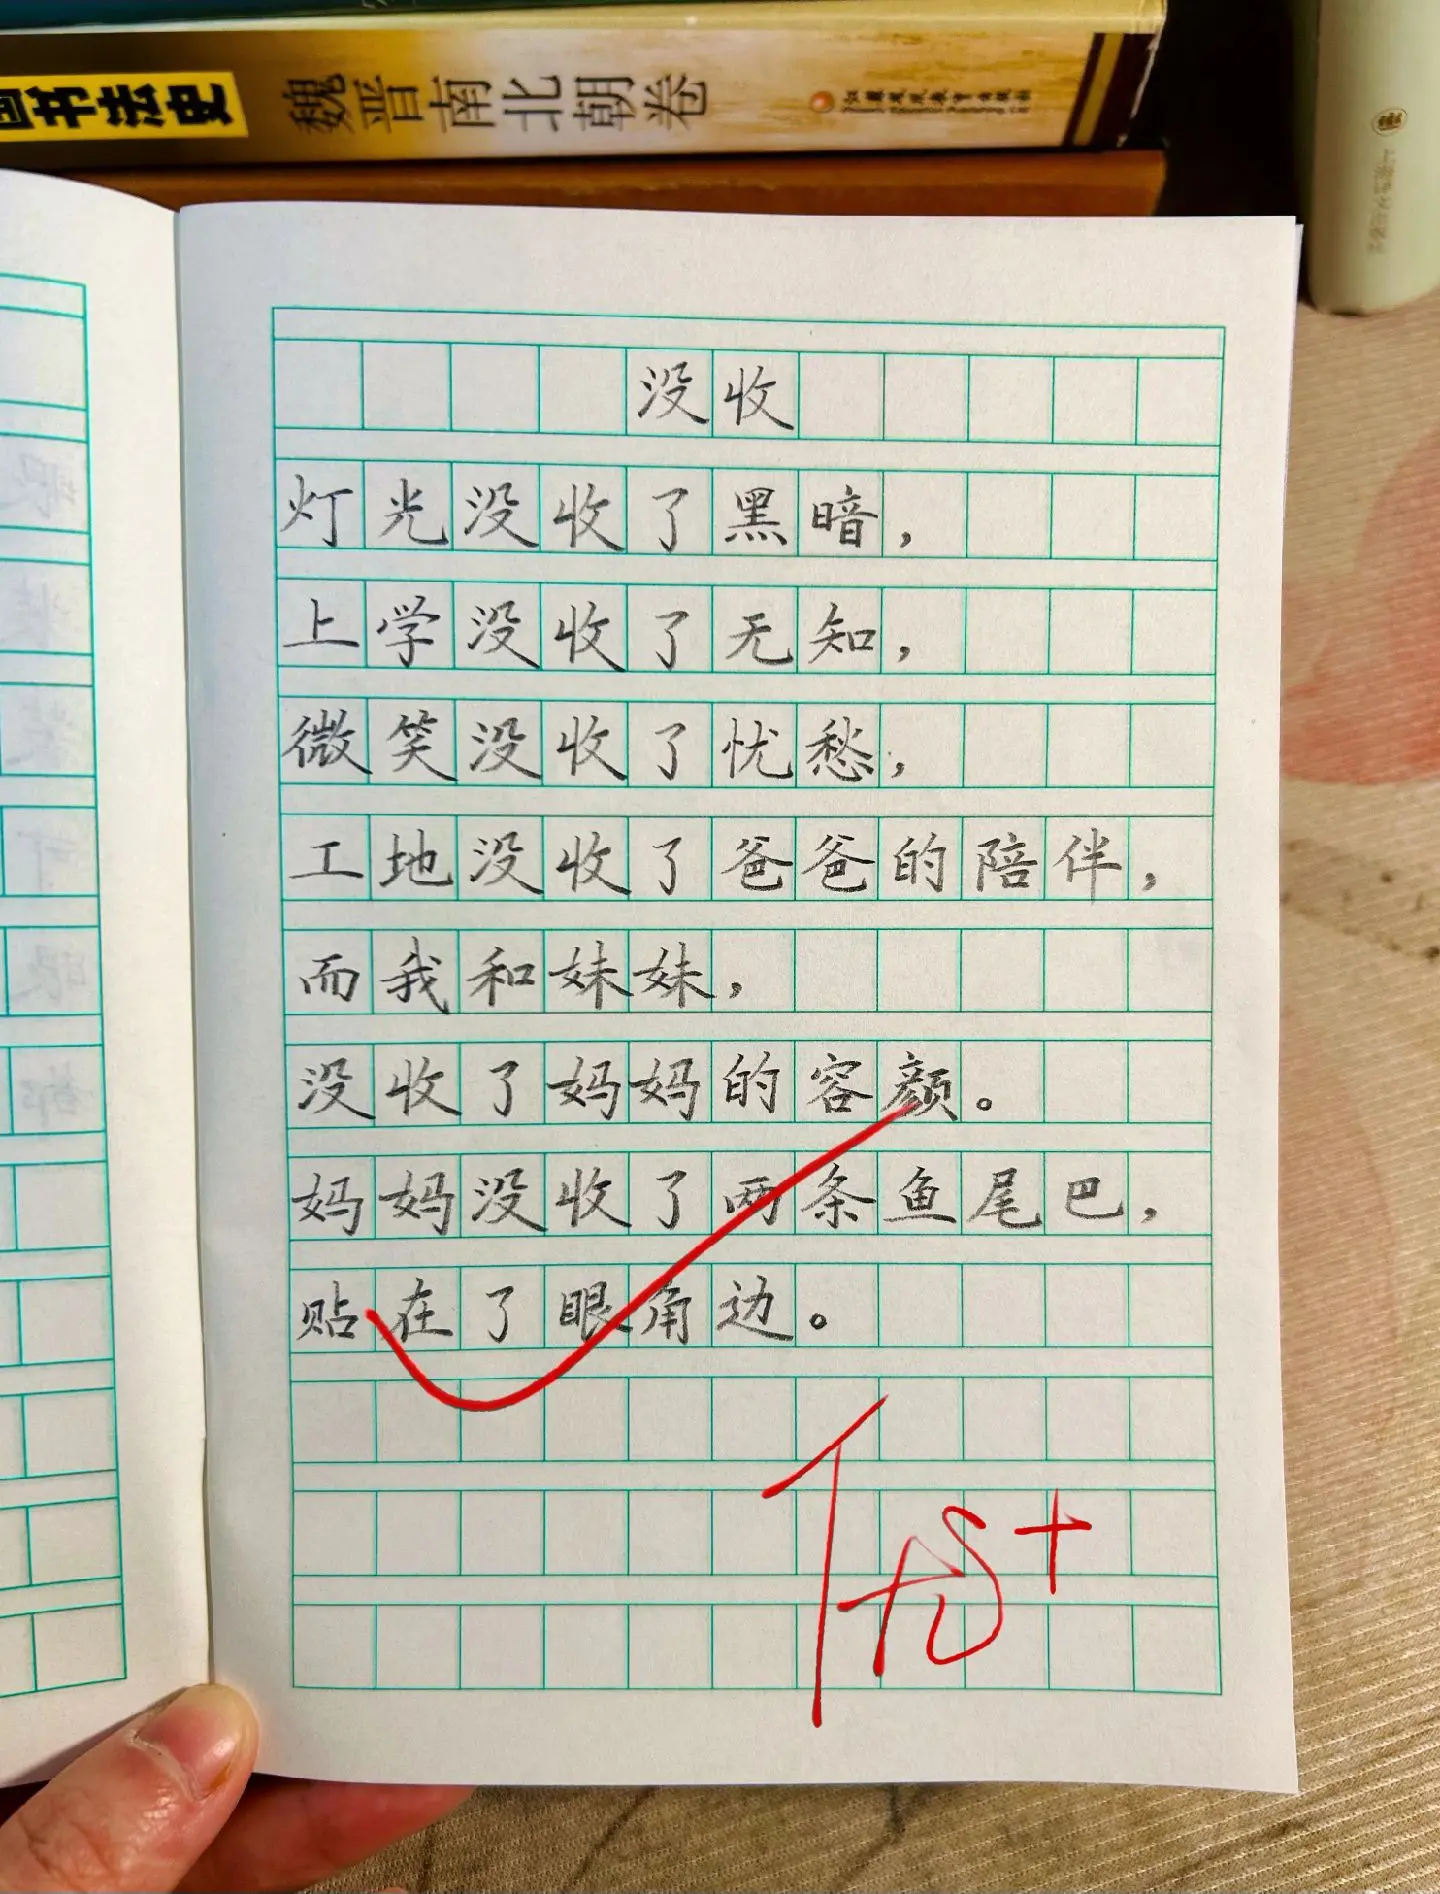 书法史 魏晋南北朝卷
没收
灯光没收了黑暗，
上学没收了无知，
微笑没收了忧愁，
工地没收了爸爸的陪伴，
而我和妹妹，
没收了妈妈的容颜。
妈妈没收了两条鱼尾巴，
贴在了眼角边。